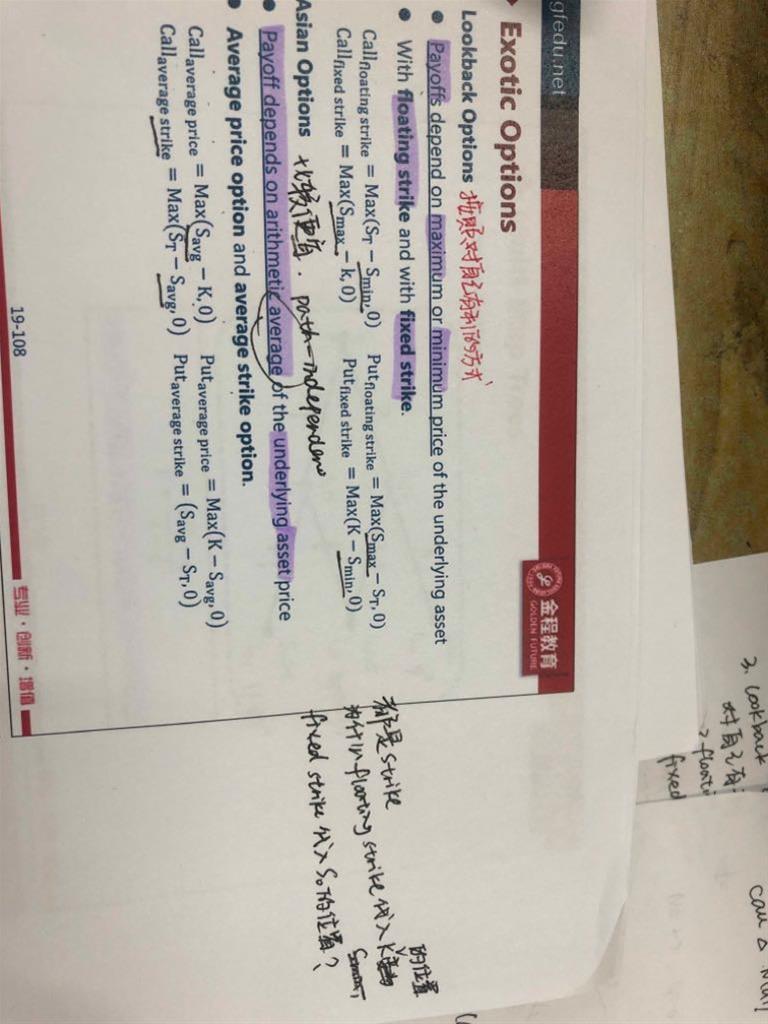 gfedu.net
金程教育
GOLDEN FUTURE
Exotic Options
Lookback Options 按照对自己有利的方式
Payoffs depend on maximum or minimum price of the underlying asset
With floating strike and with fixed strike.
Call floating strike = Max(S_T − S_min, 0) Put floating strike = Max(S_max − S_T, 0)
Call fixed strike = Max(S_max − k, 0) Put fixed strike = Max(K − S_min, 0)
Asian Options 比较便宜. path-independen
Payoff depends on arithmetic average of the underlying asset price
Average price option and average strike option.
Call average price = Max(S_avg − K, 0) Put average price = Max(K − S_avg, 0)
Call average strike = Max(S_T − S_avg, 0) Put average strike = (S_avg − S_T, 0)
19-108
专业·创新·增值
都是 strike
为什么 floating strike 代入 K 的位置
fixed strike 代入 S_0 的位置?
3. lookback
对自己有
floati
fixed
call